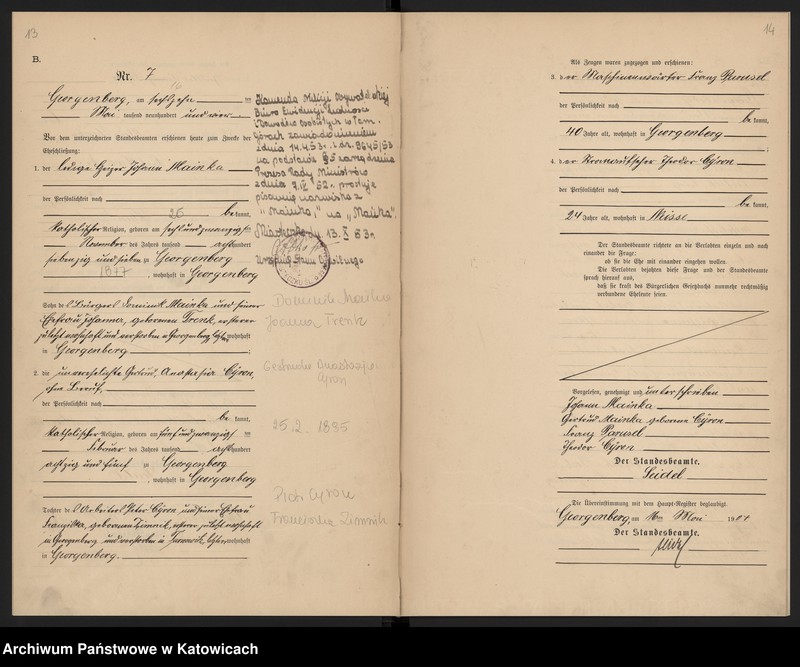 13
B.
Nr. 7
Georgenberg, am sechszehn ten
Mai tausend neunhundert und vier
Vor dem unterzeichneten Standesbeamten erschienen heute zum Zwecke der
Eheschließung:
1. der ledige Johann Mainka
der Persönlichkeit nach
26 be kannt,
katholischer Religion, geboren am sechsundzwanzig sten
November des Jahres tausend achthundert
siebenzig und sieben zu Georgenberg
1877, wohnhaft in Georgenberg
Sohn des Bürgers Dominik Mainka und seiner
Ehefrau Johanna, geborenen Trenk, ersterer
zuletzt wohnhaft und verstorben in Georgenberg, letztere wohnhaft
in Georgenberg;
2. die unverehelichte Gertrud Anastasia Cyron,
ohne Beruf,
der Persönlichkeit nach
be kannt,
katholischer Religion, geboren am fünfundzwanzig sten
Februar des Jahres tausend achthundert
achtzig und fünf zu Georgenberg
, wohnhaft in Georgenberg
Tochter des Arbeiters Peter Cyron und seiner Ehefrau
Franziska, geborenen Zimnik, ersterer zuletzt wohnhaft
in Georgenberg und verstorben in Tarnowitz, letztere wohnhaft
in Georgenberg.
Komenda Milicji Obywatelskiej
Biuro Ewidencji Ludności
i Dowodów osobistych w Tarn.
Górach zawiadomieniem
z dnia 14.4.53. l. dz. 9645/53
na podstawie § 5 zarządzenia
Prezesa Rady Ministrów
z dnia 7.IV 52 r. prostuje
pisownię nazwiska z
"Mainka," na "Majka".
Miasteczko, 13. X 53 r.
Urzędnik Stanu Cywilnego
Dominik Mainka
Joanna Trenk
Gertruda Anastazja
Cyron
25.2.1885
Piotr Cyron
Franciszka Zimnik
14
Als Zeugen waren zugezogen und erschienen:
3. der Maschinenwärter Franz Panusel
der Persönlichkeit nach
be kannt,
40 Jahre alt, wohnhaft in Georgenberg
;
4. der Theodor Cyron
der Persönlichkeit nach
be kannt,
24 Jahre alt, wohnhaft in Neisse
Der Standesbeamte richtete an die Verlobten einzeln und nach
einander die Frage:
ob sie die Ehe mit einander eingehen wollen.
Die Verlobten bejahten diese Frage und der Standesbeamte
sprach hierauf aus,
daß sie kraft des Bürgerlichen Gesetzbuchs nunmehr rechtmäßig
verbundene Eheleute seien.
Vorgelesen, genehmigt und unterschrieben
Johann Mainka
Gertrud Mainka geborene Cyron
Franz Panusel
Theodor Cyron
Der Standesbeamte.
Seidel
Die Übereinstimmung mit dem Haupt-Register beglaubigt.
Georgenberg, am 16ten Mai 1904
Der Standesbeamte.
Archiwum Państwowe w Katowicach